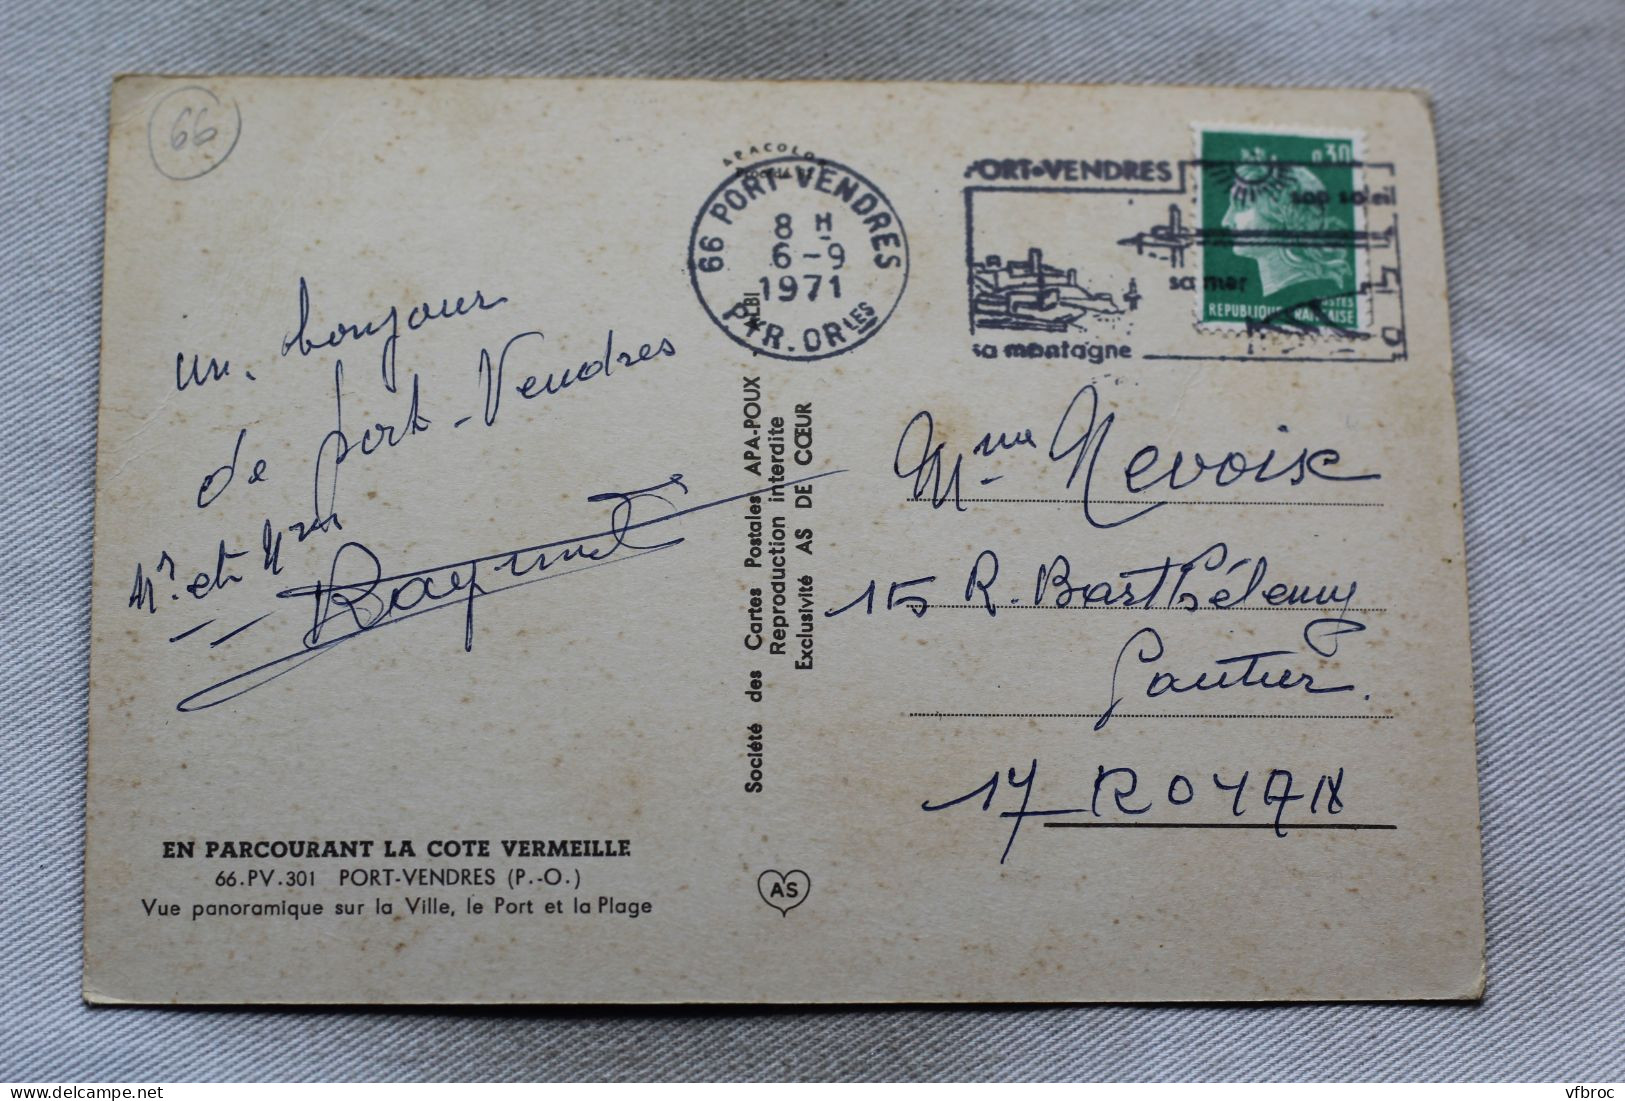 66
APACOLOR
66 PORT-VENDRES
8 H
6-9
1971
PYR. ORLES
PORT-VENDRES
son soleil
sa mer
sa montagne
0,30
POSTES
REPUBLIQUE FRANCAISE
un bonjour
de Port-Vendres
Mr et Mme
Raymond
Mme Nevoise
15 R. Barthélemy
Gautier.
17 ROYAN
ALBI
Société des Cartes Postales APA-POUX
Reproduction interdite
Exclusivité AS DE CŒUR
EN PARCOURANT LA COTE VERMEILLE
66.PV.301 PORT-VENDRES (P.-O.)
Vue panoramique sur la Ville, le Port et la Plage
AS
vfbroc